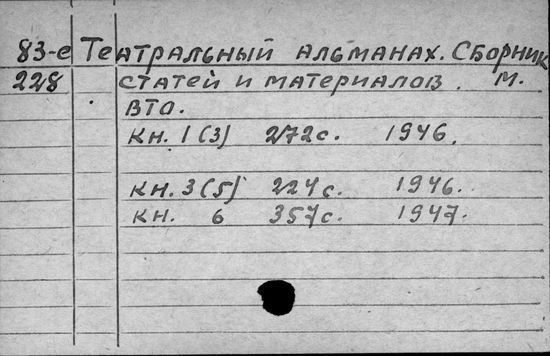 83-е Театральный альманах. Сборник
228 статей и материалов. М.
ВТО.
Кн. 1(3) 272с. 1946.
Кн. 3(5) 224с. 1946.
Кн. 6 357с. 1947.